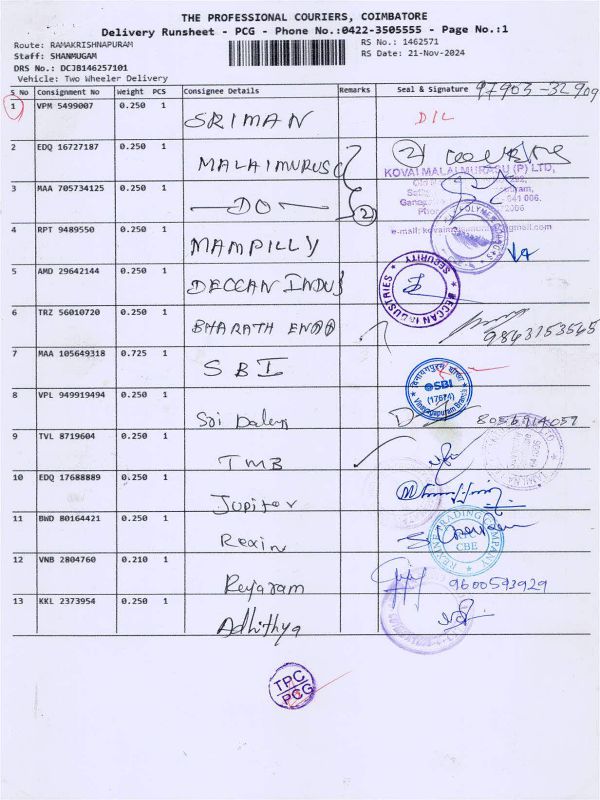 THE PROFESSIONAL COURIERS, COIMBATORE
Delivery Runsheet - PCG - Phone No.:0422-3505555 - Page No.:1
Route: RAMAKRISHNAPURAM
RS No.: 1462571
Staff: SHANMUGAM
RS Date: 21-Nov-2024
DRS No.: DCJB146257101
Vehicle: Two Wheeler Delivery
S No Consignment No Weight PCS Consignee Details Remarks Seal & Signature
1 VPM 5499007 0.250 1 SRIMAN D/L
2 EDQ 16727187 0.250 1 MALAIMURUSU
KOVAI MALAI MURASU (P) LTD,
3 MAA 705734125 0.250 1 —DO— 2
641 006.
4 RPT 9489550 0.250 1 MAMPILLY
5 AMD 29642144 0.250 1 DECCAN INDUS
DECCAN INDUSTRIES * SECURITY *
6 TRZ 56010720 0.250 1 BHARATH
9843153565
7 MAA 105649318 0.725 1 SBI
SBI
(17674)
Vinayagapuram Branch
8 VPL 949919494 0.250 1 Sri
8056914057
9 TVL 8719604 0.250 1 TMB
10 EDQ 17688889 0.250 1 Jupiter
11 BWD 80164421 0.250 1 Rexin
REXINE TRADING COMPANY
RTC
CBE
12 VNB 2804760 0.210 1 Reyaram
9600593929
13 KKL 2373954 0.250 1 Adhithya
TPC
PCG